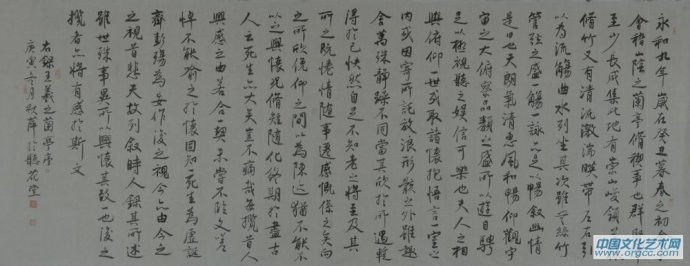 永和九年歲在癸丑暮春之初會于
會稽山陰之蘭亭脩禊事也群賢畢
至少長咸集此地有崇山峻領茂林
脩竹又有清流激湍暎帶左右引
以為流觴曲水列坐其次雖無絲竹
管弦之盛一觴一詠亦足以暢敘幽情
是日也天朗氣清惠風和暢仰觀宇
宙之大俯察品類之盛所以遊目騁
足以極視聽之娛信可樂也夫人之相
與俯仰一世或取諸懷抱悟言一室之
內或因寄所託放浪形骸之外雖趣
舍萬殊靜躁不同當其欣於所遇暫
得於己快然自足不知老之將至及其
所之既惓情隨事遷感慨係之矣向
之所欣俛仰之間以為陳迹猶不能不
以之興懷況脩短隨化終期於盡古
人云死生亦大矣豈不痛哉每攬昔人
興感之由若合一契未嘗不臨文嗟
悼不能喻之於懷固知一死生為虛誕
齊彭殤為妄作後之視今亦由今
之視昔悲夫故列敘時人錄其所述
雖世殊事異所以興懷其致一也後之
攬者亦將有感於斯文
右錄王羲之蘭亭序
庚寅月秋萍於聽花堂
中国文化艺术网
www.orgcc.com